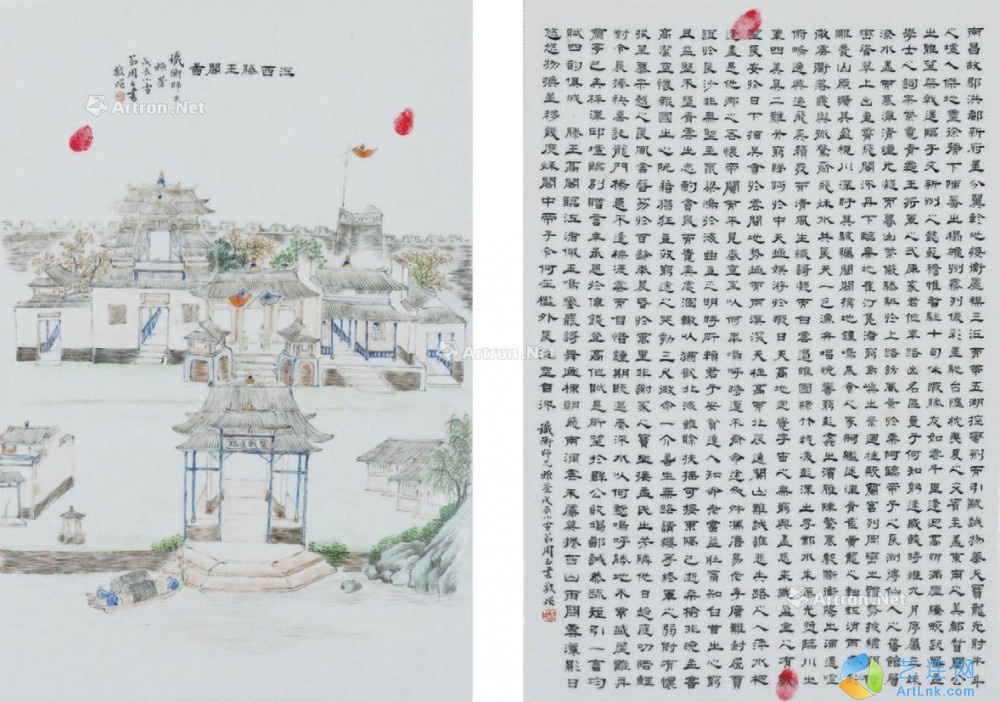 江西滕王閣圖
鐵衡師兄
補壁
戊辰小雪
弟周玉書
敬贈
南昌故郡洪都新府星分翼軫地接衡廬襟三江而帶五湖控蠻荊而引甌越物華天寶龍光射牛斗
之墟人傑地靈徐孺下陳蕃之榻雄州霧列俊彩星馳臺隍枕夷夏之交賓主盡東南之美都督閻公
之雅望棨戟遙臨宇文新州之懿範襜帷暫駐十旬休暇勝友如雲千里逢迎高朋滿座騰蛟起鳳孟
學士之詞宗紫電青霜王將軍之武庫家君作宰路出名區童子何知躬逢勝餞時維九月序屬三秋
潦水盡而寒潭清煙光凝而暮山紫儼驂騑於上路訪風景於崇阿臨帝子之長洲得仙人之舊館層
巒聳翠上出重霄飛閣流丹下臨無地鶴汀鳧渚窮島嶼之縈迴桂殿蘭宮列岡巒之體勢披繡闥俯
雕甍山原曠其盈視川澤盱其駭矚閭閻撲地鐘鳴鼎食之家舸艦迷津青雀黃龍之舳虹銷雨霽彩
徹雲衢落霞與孤鶩齊飛秋水共長天一色漁舟唱晚響窮彭蠡之濱雁陣驚寒聲斷衡陽之浦遙吟
俯暢逸興遄飛爽籟發而清風生纖歌凝而白雲遏睢園綠竹氣凌彭澤之樽鄴水朱華光照臨川之
筆四美具二難并窮睇眄於中天極娛遊於暇日天高地迥覺宇宙之無窮興盡悲來識盈虛之有數
望長安於日下指吳會於雲間地勢極而南溟深天柱高而北辰遠關山難越誰悲失路之人萍水相
逢盡是他鄉之客懷帝閽而不見奉宣室以何年嗚呼時運不齊命途多舛馮唐易老李廣難封屈賈
誼於長沙非無聖主竄梁鴻於海曲豈乏明時所賴君子安貧達人知命老當益壯寧知白首之心窮
且益堅不墜青雲之志酌貪泉而覺爽處涸轍以猶歡北海雖賒扶搖可接東隅已逝桑榆非晚孟嘗
高潔空懷報國之心阮籍猖狂豈效窮途之哭勃三尺微命一介書生無路請纓等終軍之弱冠有懷
投筆慕宗愨之長風舍簪笏於百齡奉晨昏於萬里非謝家之寶樹接孟氏之芳鄰他日趨庭叨陪鯉
對今晨捧袂喜託龍門楊意不逢撫凌雲而自惜鍾期既遇奏流水以何慚嗚呼勝地不常盛筵難再
蘭亭已矣梓澤邱墟臨別贈言幸承恩於偉餞登高作賦是所望於群公敢竭鄙誠恭疏短引一言均
賦四韻俱成滕王高閣臨江渚佩玉鳴鸞罷歌舞畫棟朝飛南浦雲朱簾暮捲西山雨閒雲潭影日
悠悠物換星移幾度秋閣中帝子今何在檻外長江空自流 鐵衡師兄補壁戊辰小雪弟周玉書敬贈
Artron.Net
Artron.Net
Artron.Net
Artron.Net
艺连网
ArtLnk.com